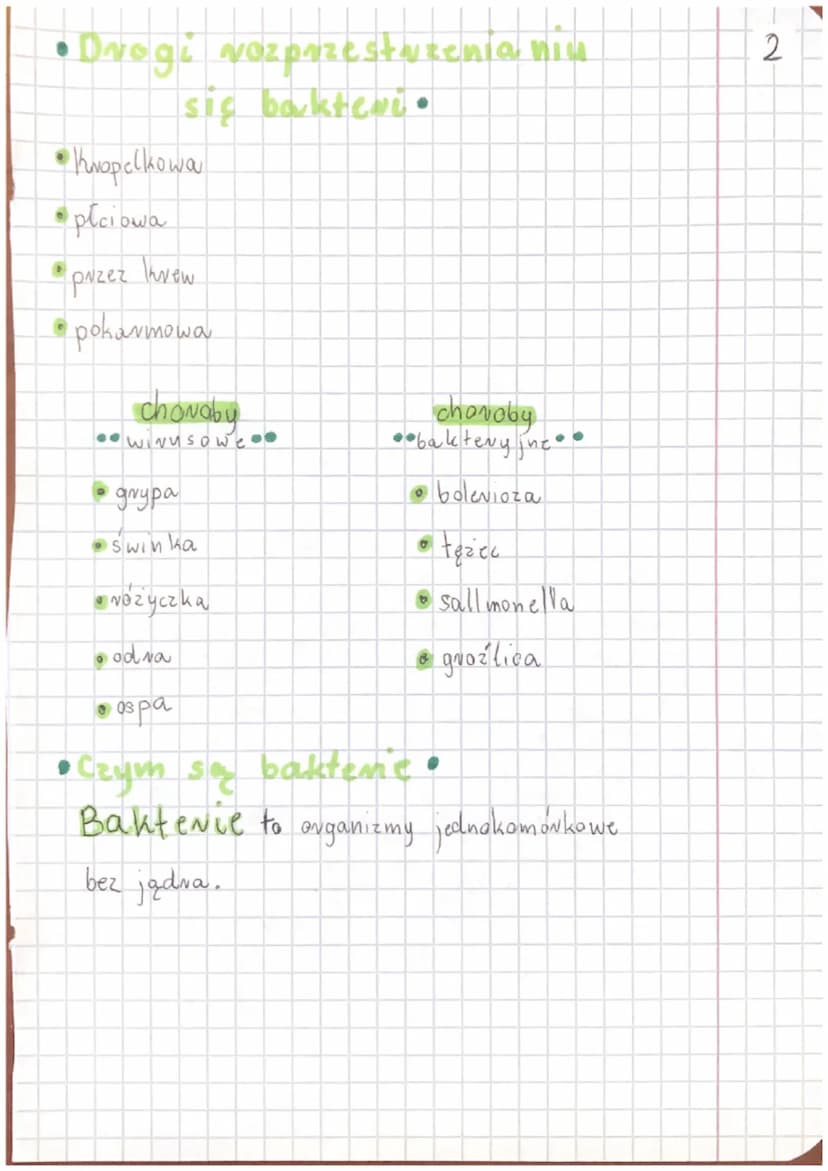 2
• Drogi rozprzestrzenianiu
się bakteri •
• kropelkowa
• płciowa
• przez krew
• pokarmowa
choroby
•• wirusowe ••
• grypa
• świnka
• różyczka
• odra
• ospa
choroby
•• bakteryjne ••
• bolerioza
• tężec
• sallmonella
• gruźlica
• Czym są bakterie •
Bakterie to organizmy jednokomórkowe
bez jądra.